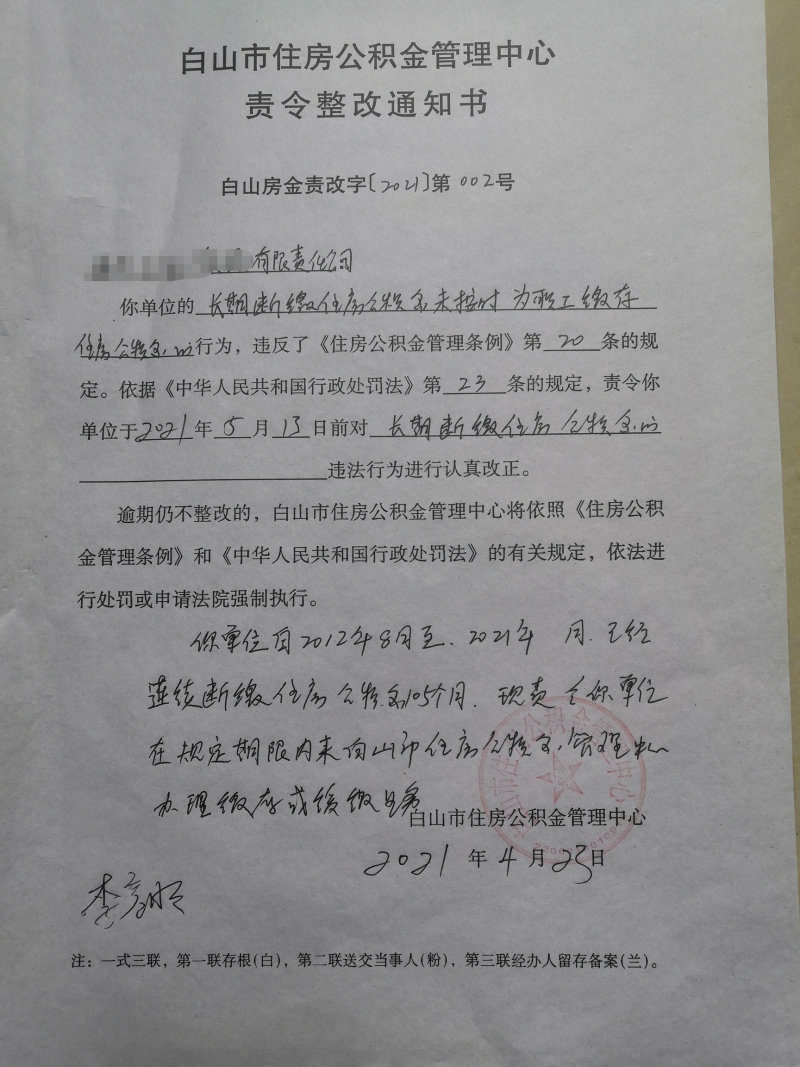 白山市住房公积金管理中心
责令整改通知书
白山房金责改字〔2021〕第002号
有限责任公司
你单位的长期断缴住房公积金未按时为职工缴存
住房公积金的行为，违反了《住房公积金管理条例》第20条的规
定。依据《中华人民共和国行政处罚法》第23条的规定，责令你
单位于2021年5月13日前对长期断缴住房公积金的
违法行为进行认真改正。
逾期仍不整改的，白山市住房公积金管理中心将依照《住房公积
金管理条例》和《中华人民共和国行政处罚法》的有关规定，依法进
行处罚或申请法院强制执行。
你单位自2012年8月至2021年 月.已经
连续断缴住房公积金105个月.现责令你单位
在规定期限内来白山市住房公积金管理中心
办理缴存或缓缴业务
白山市住房公积金管理中心
2021年4月23日
注：一式三联，第一联存根(白)，第二联送交当事人(粉)，第三联经办人留存备案(兰)。